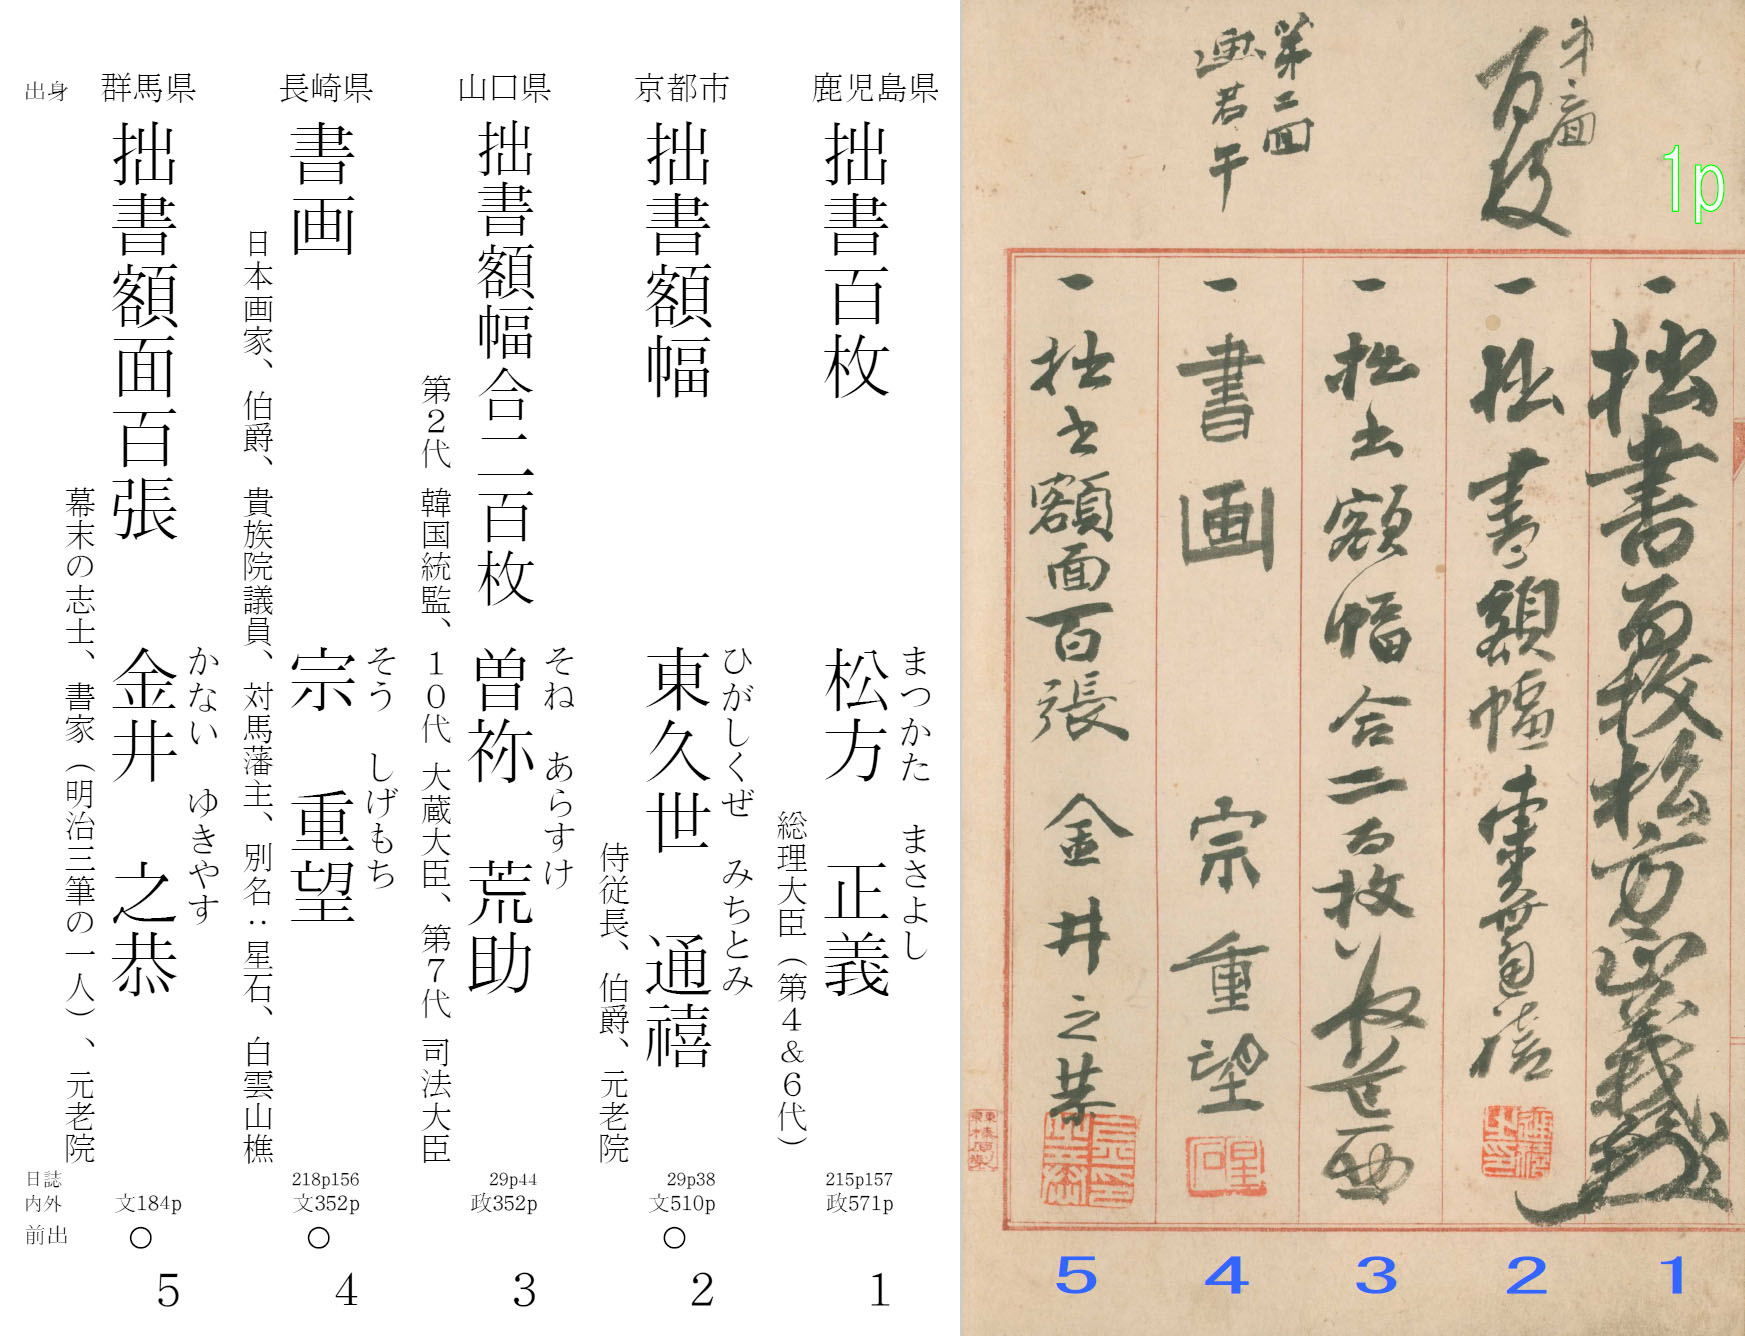 第二回
百枚
第二回
画若干
1p
一 拙書百枚 松方正義
一 拙書額幅 東久世通禧
一 拙書額幅合二百枚
一 書画 宗重望
一 拙書額面百張 金井之恭
1
2
3
4
5
鹿児島県
拙書百枚
まつかた まさよし
松方 正義
総理大臣（第4＆6代）
215p157
政571p
1
京都市
拙書額幅
ひがしくぜ みちとみ
東久世 通禧
侍従長、伯爵、元老院
29p38
文510p
○
2
山口県
拙書額幅合二百枚
そね あらすけ
曽祢 荒助
第２代 韓国統監、１０代 大蔵大臣、第７代 司法大臣
29p44
政352p
3
長崎県
書画
そう しげもち
宗 重望
日本画家、伯爵、貴族院議員、対馬藩主、別名：星石、白雲山樵
218p156
文352p
○
4
群馬県
拙書額面百張
かない ゆきやす
金井 之恭
幕末の志士、書家（明治三筆の一人）、元老院
文184p
○
5
出身
日誌
内外
前出